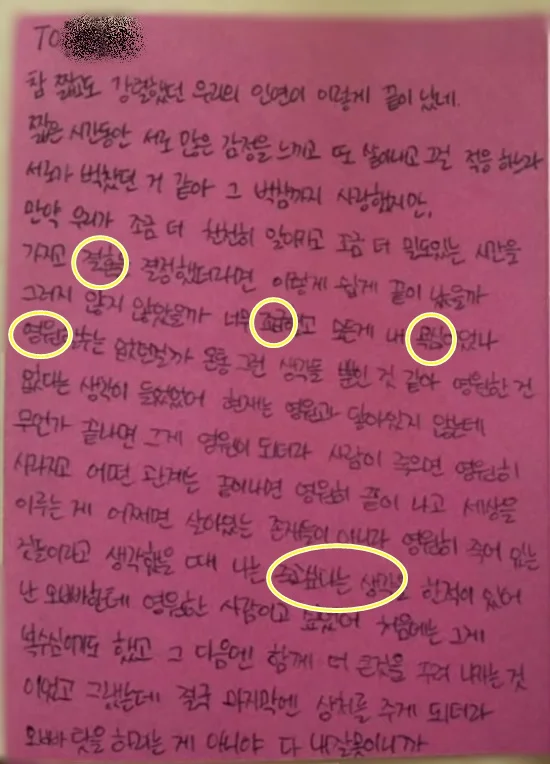 To
참 짧고도 강렬했던 우리의 인연이 이렇게 끝이 났네.
짧은 시간동안 서로 많은 감정을 느끼고 또 쏟아내고 그걸 적응하느라
서로가 벅찼던 거 같아 그 벅참까지 사랑했지만,
만약 우리가 조금 더 천천히 알아가고 조금 더 밀도있는 시간을
가지고 결혼을 결정했더라면 이렇게 쉽게 끝이 났을까
그러지 않지 않았을까 너무 조급하고 모든게 내 욕심이었나
영원이라는 없었던걸까 온통 그런 생각들 뿐인 것 같아 영원한 건
없다는 생각이 들었었어 현재는 영원과 닿아있지 않는데
무언가 끝나면 그게 영원이 되더라 사람이 죽으면 영원히
사라지고 어떤 관계는 끝이나면 영원히 끝이 나고 세상을
이루는 게 어쩌면 살아있는 존재들이 아니라 영원히 죽어 있는
것들이라고 생각했을 때 나는 죽고싶다는 생각을 한적이 있어
난 오빠한테 영원한 사람이고 싶었어 처음에는 그게
복수심이기도 했고 그 다음엔 함께 더 큰것을 꾸려 나가는 것
이었고 그랬는데 결국 마지막엔 상처를 주게 되더라
오빠 탓을 하려는 게 아니야 다 내 잘못이니까